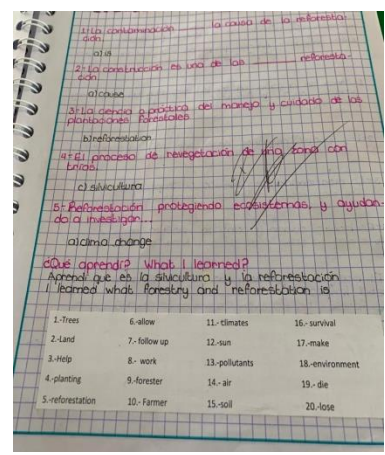 1:-La contaminación ____ la causa de la reforesta-
ción.
a) is
2:-La construcción es una de las ____ reforesta-
ción
a) cause
3:-La ciencia o practica del manejo y cuidado de las
plantaciones forestales
b) reforestation
4:-El proceso de revegetación de una zona con
c) silvicultura
5:-Reforestación protegiendo ecosistemas, y ayudan-
do a
a) clima change
¿Qué aprendí? What I learned?
Aprendí que es la silvicultura y la reforestación
I learned what forestry and reforestation is
1.-Trees 6.-allow 11.- climates 16.- survival
2.-Land 7.- follow up 12.-sun 17.-make
3.-Help 8.- work 13.-pollutants 18.-environment
4.-planting 9.-forester 14.- air 19.- die
5.-reforestation 10.- Farmer 15.-soil 20.-lose